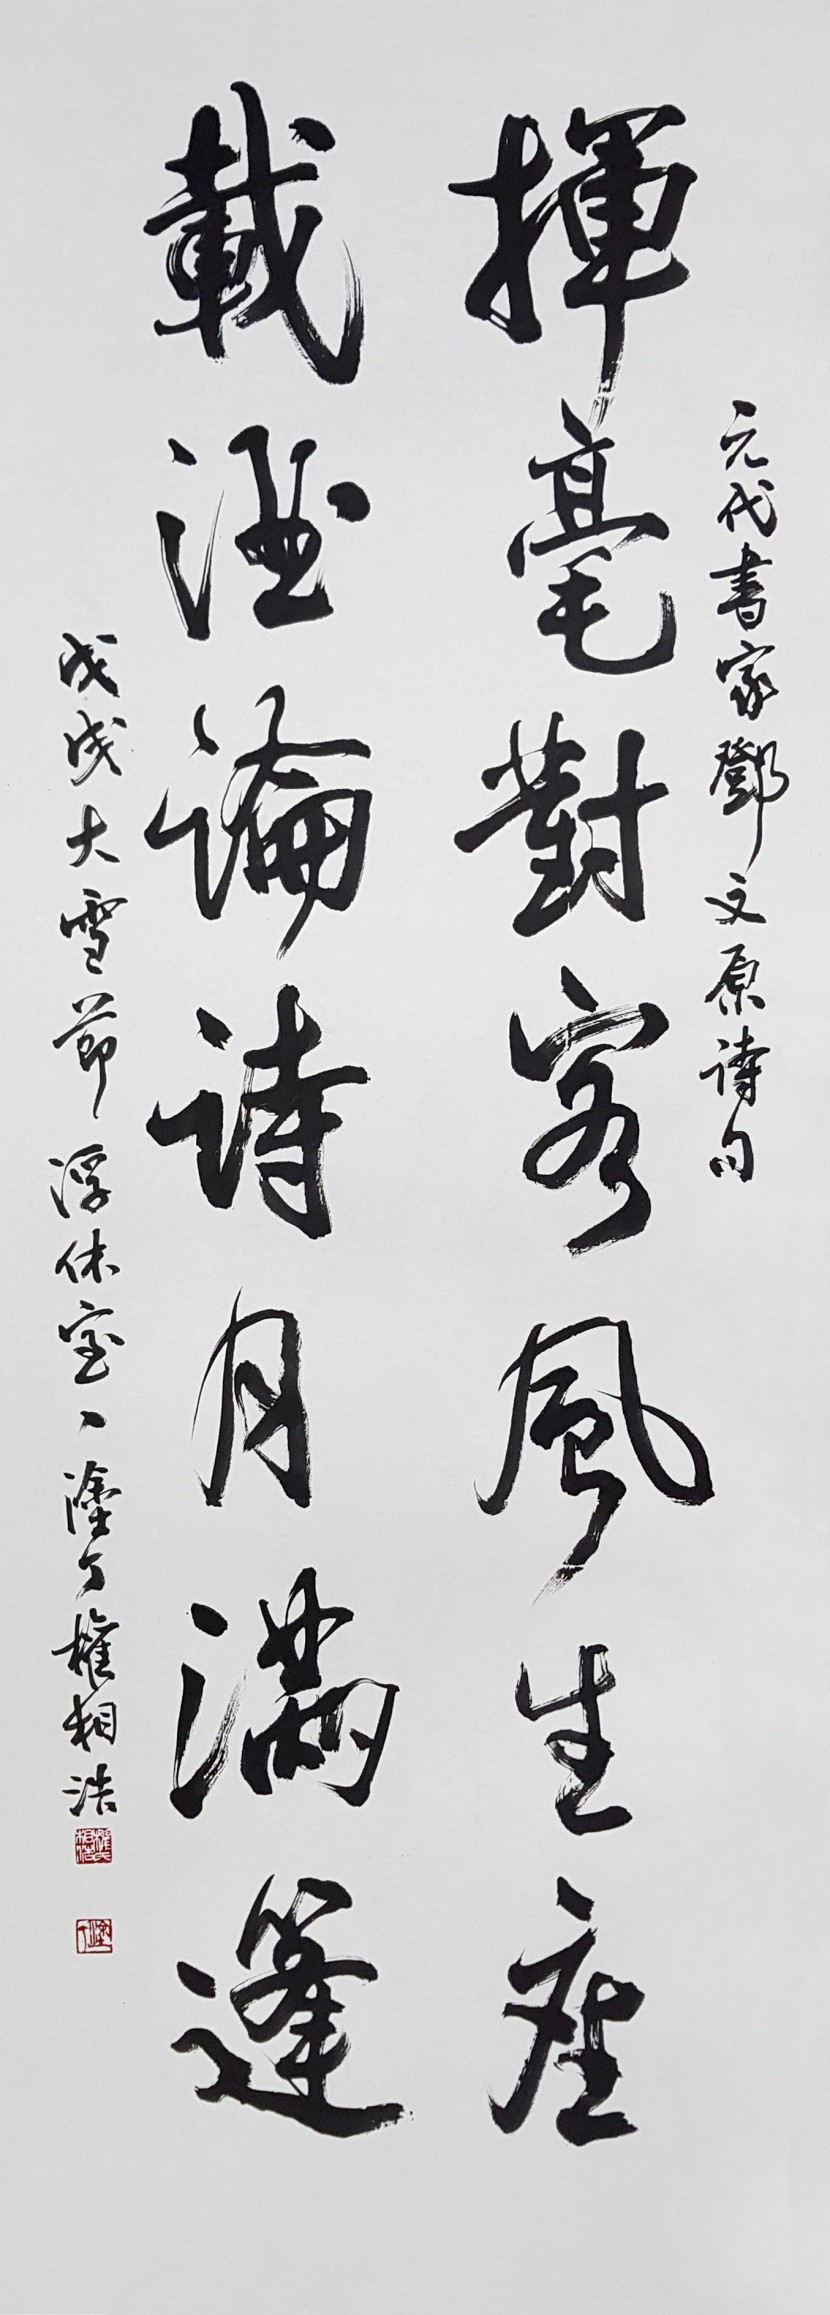 元代书家鄧文原詩句
揮毫對客風生座
載酒論詩月滿篷
戊戌大雪節浮休室丶塗丁權相浩